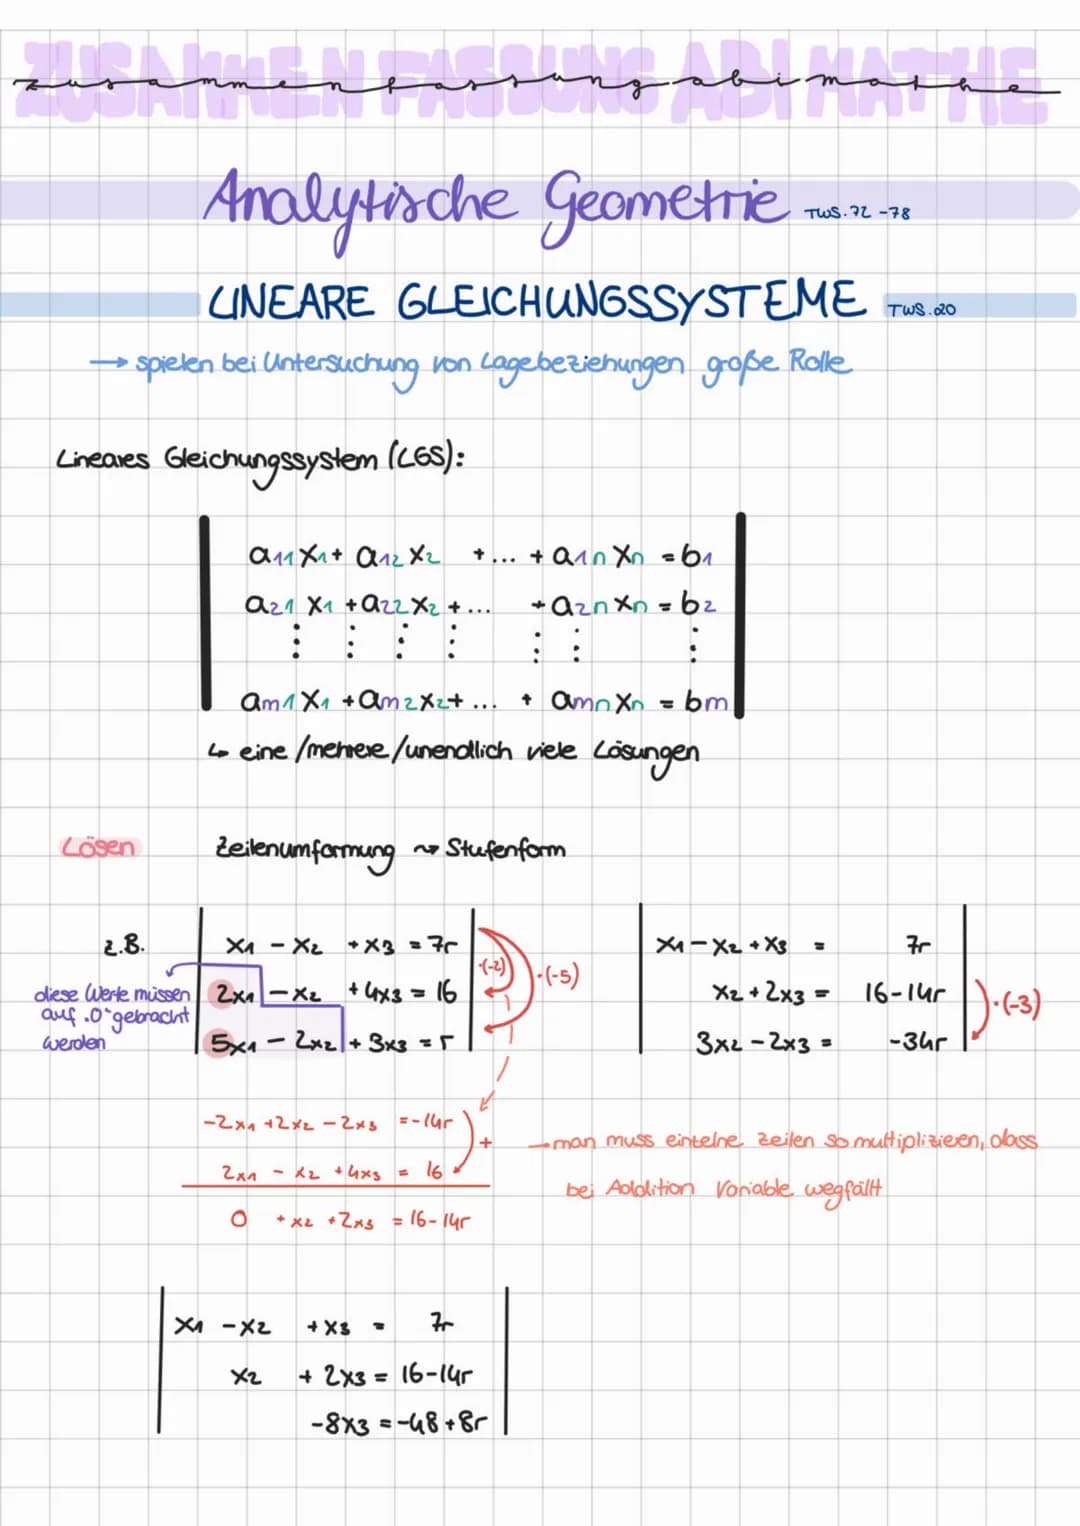 ZUSAMMENFASSUNG ABI MATHE
zusammenfassung abi mathe
Analytische Geometrie TWS.72-78
LINEARE GLEICHUNGSSYSTEME TWS.20
→ spielen bei Untersuchung von Lagebeziehungen große Rolle
Lineares Gleichungssystem (LGS):
a11 x1 + a12 x2 + ... + a1n xn = b1
a21 x1 + a22 x2 + ... + a2n xn = b2
⋮ ⋮ ⋮ ⋮ ⋮ ⋮ ⋮
am1 x1 + am2 x2 + ... + amn xn = bm
↳ eine /mehrere /unendlich viele Lösungen
Lösen Zeilenumformung ⇝ Stufenform
z.B.
diese Werte müssen
auf "0" gebracht
werden
x1 - x2 + x3 = 7r
2x1 - x2 + 4x3 = 16
5x1 - 2x2 + 3x3 = r
·(-2)
·(-5)
x1 - x2 + x3 = 7r
x2 + 2x3 = 16-14r
3x2 - 2x3 = -34r
·(-3)
-2x1 + 2x2 - 2x3 = -14r
2x1 - x2 + 4x3 = 16
+
0 + x2 + 2x3 = 16-14r
→ man muss einzelne Zeilen so multiplizieren, dass
bei Addition Variable wegfällt
x1 - x2 + x3 = 7r
x2 + 2x3 = 16-14r
-8x3 = -48+8r